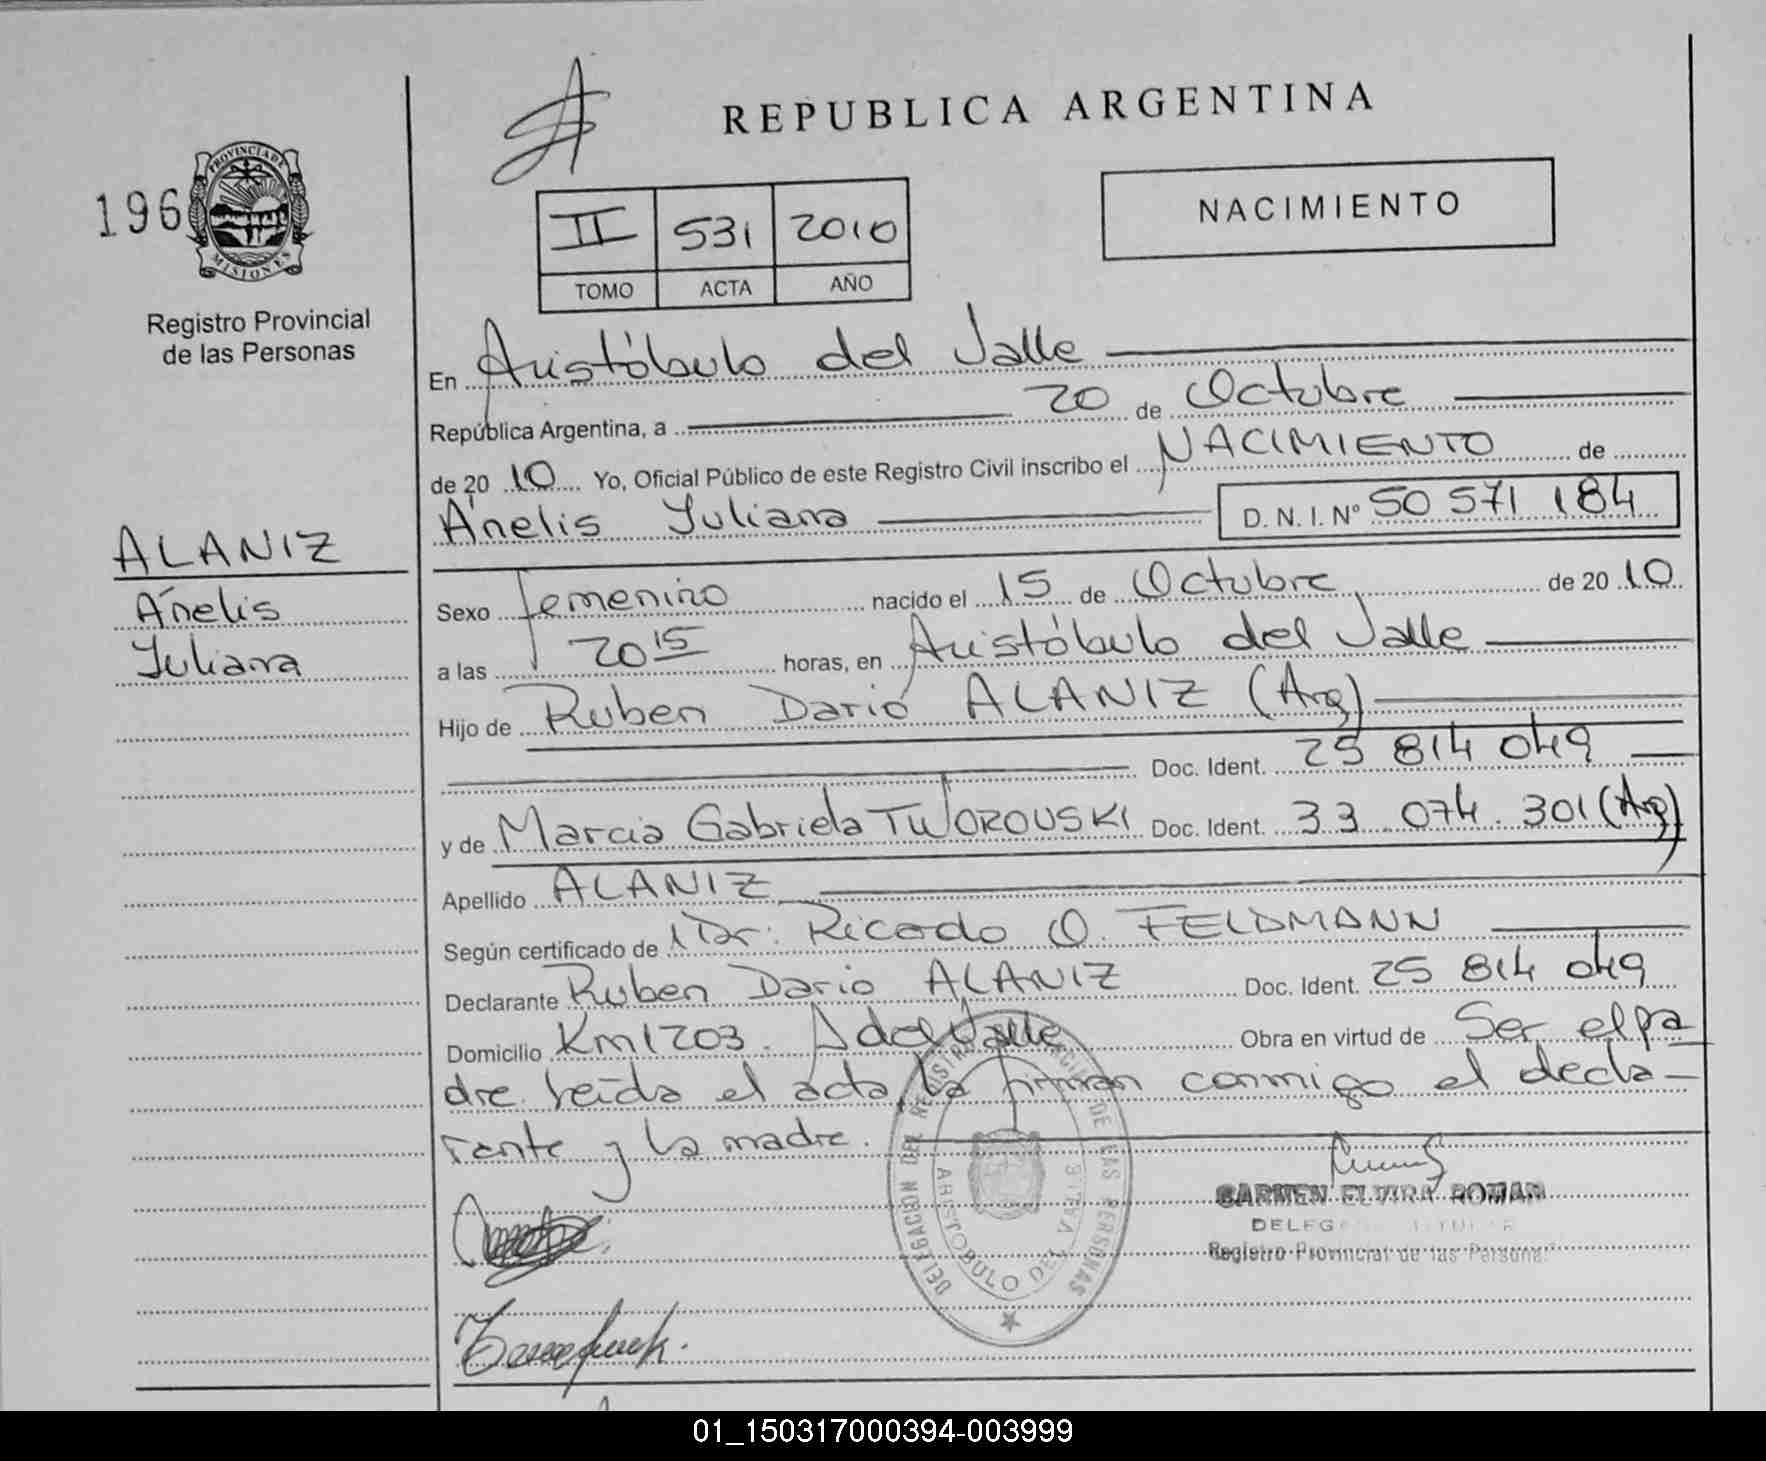 REPUBLICA ARGENTINA
196
PROVINCIA DE
MISIONES
Registro Provincial
de las Personas
II 531 2010
TOMO ACTA AÑO
NACIMIENTO
En Aristóbulo del Valle
República Argentina, a 20 de Octubre
de 20 10 Yo, Oficial Público de este Registro Civil inscribo el NACIMIENTO de
Ánelis Yuliana D. N. I. Nº 50 571 184
ALANIZ
Ánelis
Yuliana
Sexo femenino nacido el 15 de Octubre de 20 10
a las 20 15 horas, en Aristóbulo del Valle
Hijo de Ruben Dario ALANIZ (Arg)
Doc. Ident. 25 814 049
y de Marcia Gabriela TWOROUSKI Doc. Ident. 33 074 301 (Arg)
Apellido ALANIZ
Según certificado de Dr: Ricardo O. FELDMANN
Declarante Ruben Dario ALANIZ Doc. Ident. 25 814 049
Domicilio Km 1203. A del Valle Obra en virtud de Ser el pa
dre. leída el acta, la firman conmigo el decla-
rante y la madre.
DELEGACION DEL REGISTRO PROVINCIAL DE LAS PERSONAS
ARISTOBULO DEL VALLE
CARMEN ELVIRA ROMAN
Registro Provincial de las Personas
01_150317000394-003999